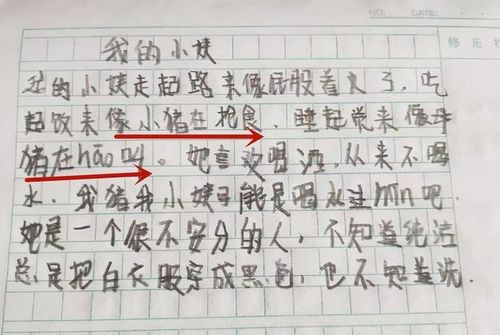 NO. DATE:
修正栏
我的小姨
我的小姨走起路来像屁股着火了，吃
起饭来像小猪在抢食，睡起觉来像母
猪在hāo叫。她喜欢喝酒，从来不喝
水，我猜我小姨可能是喝水过min吧
她是一个很不安分的人，不知道纯洁
总是把白衣服穿成黑色，也不知道洗